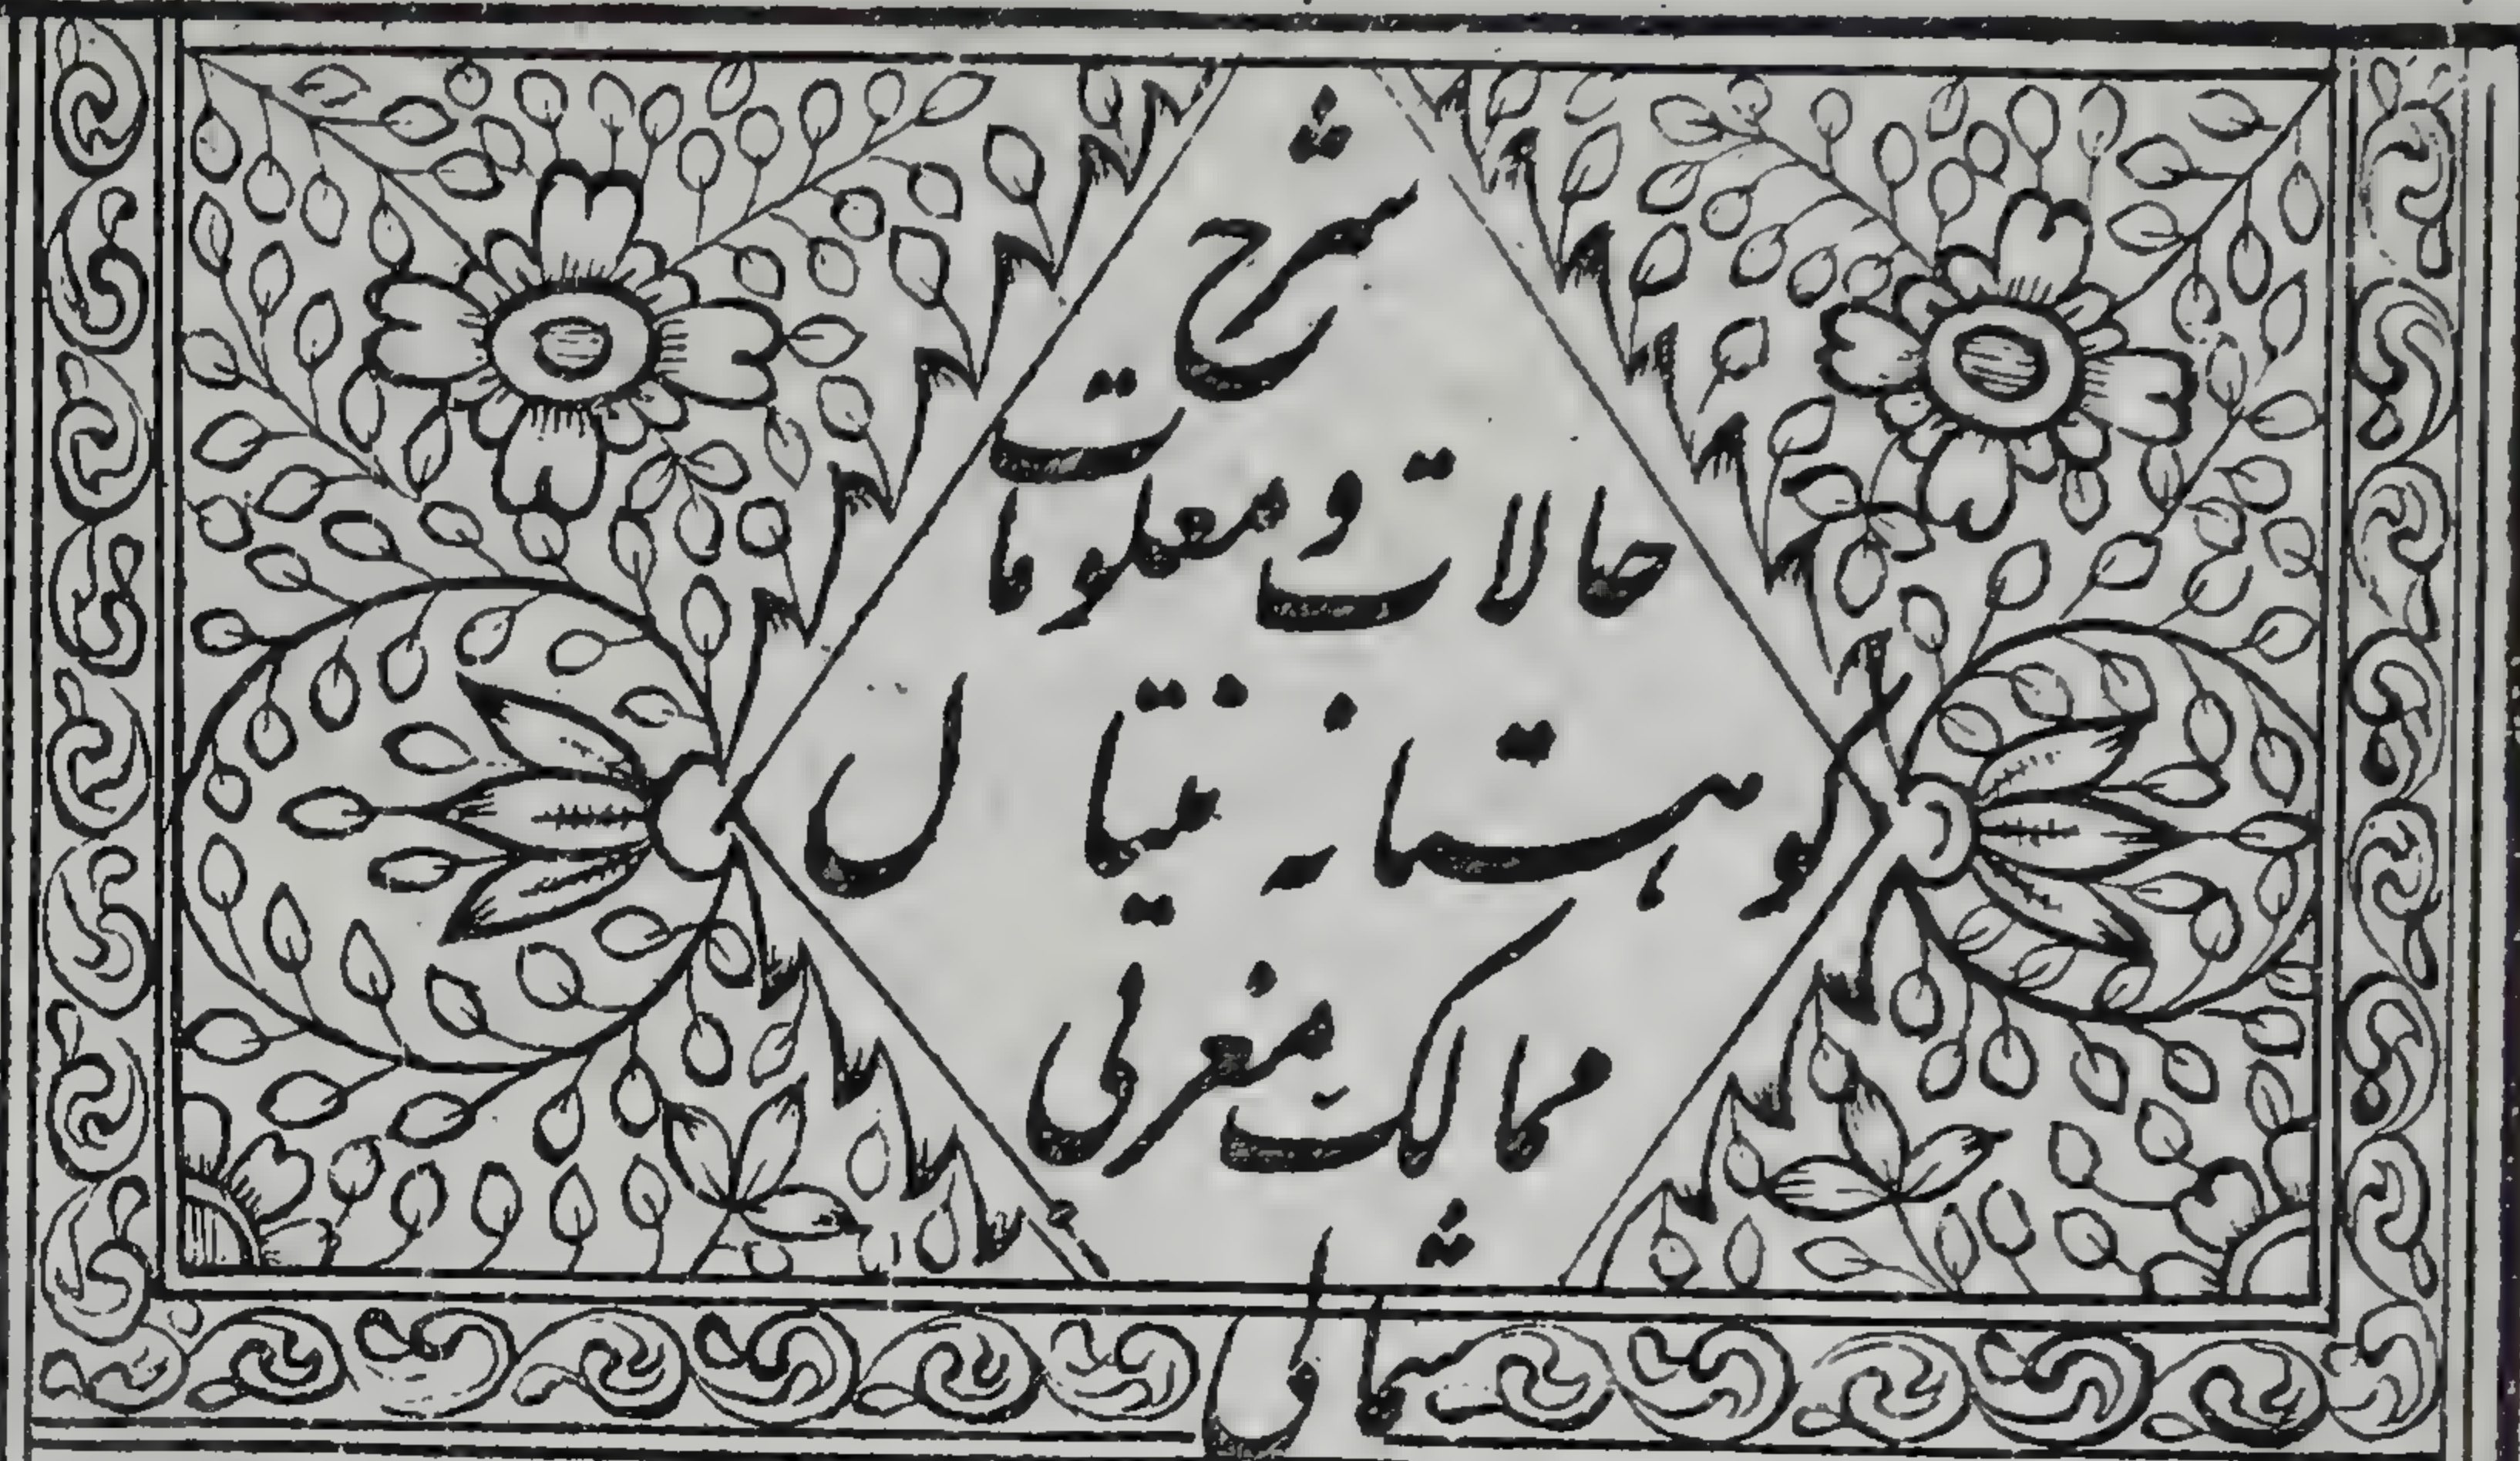 شرح
حالات و معلومات
کوہستان نیتال
ممالکِ مغربی
شمالی